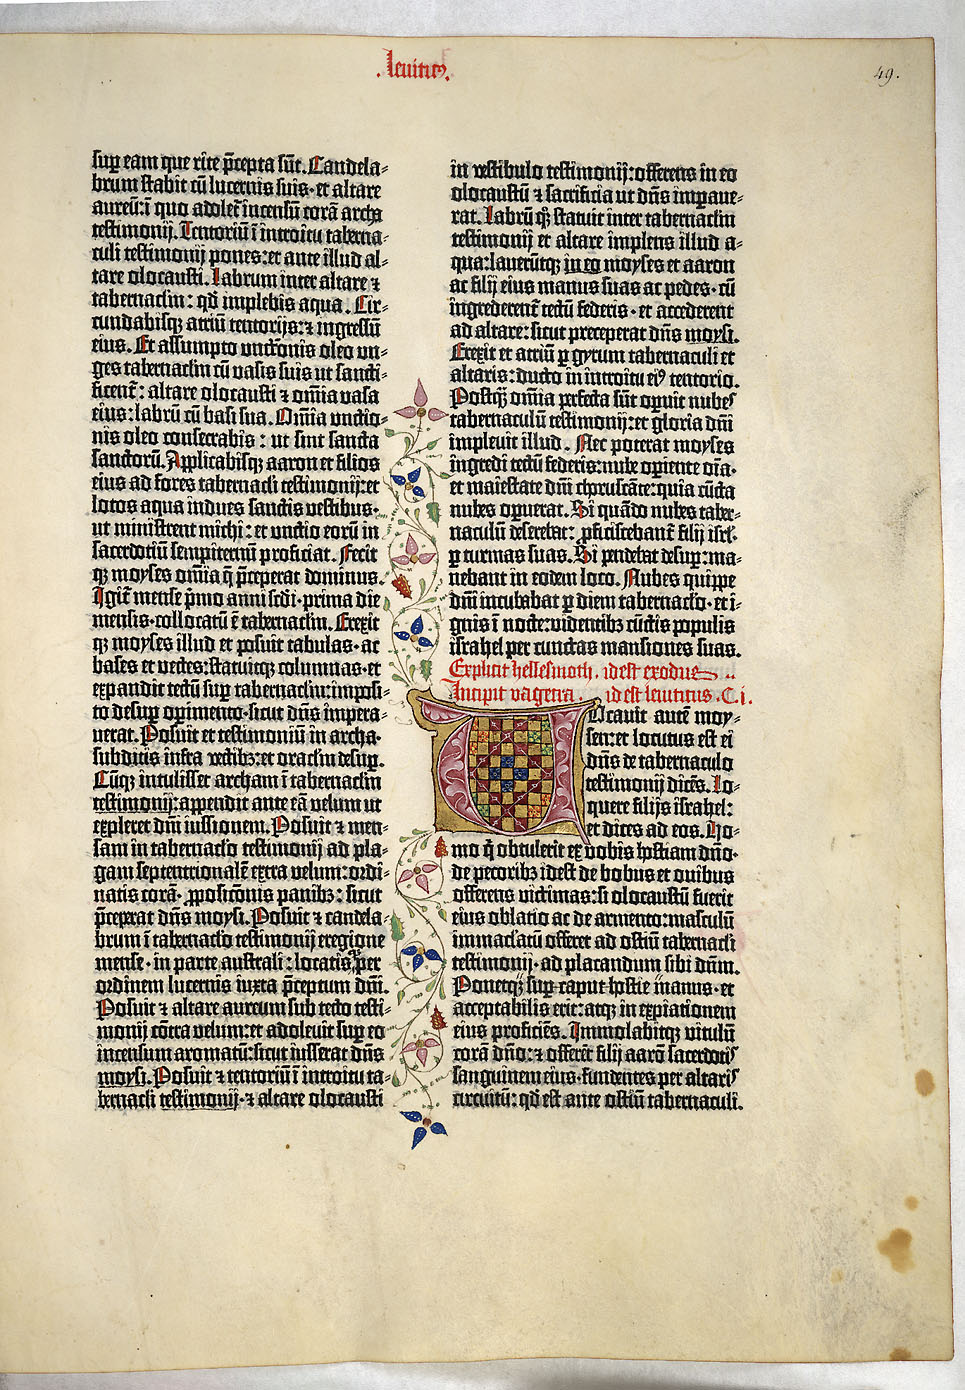 .leuitic9.
49.
sup eam que rite p̄cepta sūt. Candela-
brum stabit cū lucernis suis· et altare
aureū: ī quo adolet̄ incensū corā archa
testimonij. Tentoriū ī introitu taberna-
culi testimonij pones: et ante illud al-
tare olocausti. labrum inter altare ⁊
tabernaclm̄: qd̄ implebis aqua. Cir-
cundabisqꝫ atriū tentorijs: ⁊ ingressū
eius. Et assumpto unctōnis oleo un-
ges tabernaclm̄ cū vasis suis ut sancti-
ficent̄: altare olocausti ⁊ om̄ia vasa
eius: labrū cū basi sua. Om̄ia unctio-
nis oleo consecrabis: ut sint sancta
sanctorū. Applicabisqꝫ aaron et filios
eius ad fores tabernacl̄i testimonij: et
lotos aqua indues sanctis vestibus·
ut ministrent michi: et unctio eorū in
sacerdotiū sempiternū proficiat. Fecit
qꝫ moyses om̄ia q̄ p̄ceperat dominus.
Igit̄ mense p̄mo anni scd̄i· prima die
mensis· collocatū ē tabernaclm̄. Erexit
qꝫ moyses illud et posuit tabulas· ac
bases et vectes: statuitqꝫ columnas· et
expandit tectū sup tabernaclm̄: imposi-
to desup opimento· sicut dn̄s impera-
uerat. Posuit et testimoniū in archa·
subditis infra vectibꝫ: et oraclm̄ desup.
Cūqꝫ intulisset archam ī tabernaclm̄
testimonij: appendit ante eā velum ut
expleret dn̄i iussionem. Posuit ⁊ men-
sam in tabernacl̄o testimonij ad pla-
gam septentrionalē extra velum: ordi-
natis corā· p̱posicōnis panibꝫ: sicut
p̄ceperat dn̄s moysi. Posuit ⁊ candela-
brum ī tabernacl̄o testimonij eregione
mense· in parte australi: locatis per
ordinem lucernis iuxta p̄ceptum dn̄i.
Posuit ⁊ altare aureum sub tecto testi-
monij cōtra velum: et adoleuit sup eo
incensum aromatū: sicut iusserat dn̄s
moysi. Posuit ⁊ tentoriū ī introitu ta-
bernacl̄i testimonij· ⁊ altare olocausti
in vestibulo testimonij: offerens in eo
olocaustū ⁊ sacrificia ut dn̄s impaue-
rat. labrū qꝫ statuit inter tabernaclm̄
testimonij et altare implens illud a-
qua: lauerūtqꝫ in eo moyses et aaron
ac filij eius manus suas ac pedes· cū
ingrederent̄ tectū federis· et accederent
ad altare: sicut preceperat dn̄s moysi.
Erexit et atriū p gyrum tabernaculi et
altaris: ducto in introitu ei9 tentorio.
Postqꝫ om̄ia perfecta sūt opuit nubes
tabernaculū testimonij: et gloria dn̄i
impleuit illud. Nec poterat moyses
ingredi tectū federis: nube opiente oīa·
et maiestate dn̄i choruscāte: quia cūcta
nubes opuerat. Si quādo nubes taber-
naculū deserebat: p̱ficiscebant̄ filij isrl̄·
p turmas suas. Si pendebat desup: ma-
nebant in eodem loco. Nubes quippe
dn̄i incubabat p diem tabernacl̄o· et i-
gnis ī nocte: videntibꝫ cūctis populis
israhel per cunctas mansiones suas.
Explicit hellesmoth. id est exodus ..
Incipit vagecra. id est leuiticus .C.i.
Vocauit autē moy-
sen: et locutus est ei
dn̄s de tabernaculo
testimonij dicēs. Lo-
quere filijs israhel:
et dices ad eos. Ho-
mo q̄ obtulerit ex vobis hostiam dn̄o·
de pecoribꝫ id est de bobus et ouibus
offerens victimas: si olocaustū fuerit
eius oblatio ac de armento: masculū
immacl̄atū offeret ad ostiū tabernacl̄i
testimonij· ad placandum sibi dn̄m.
Ponetqꝫ sup caput hostie manus· et
acceptabilis erit: atqꝫ in expiationem
eius proficiēs. Immolabitqꝫ vitulū
corā dn̄o: ⁊ offerēt filij aarō sacerdotis
sanguinem eius· fundentes per altaris
circuitū: qd̄ est ante ostiū tabernaculi.